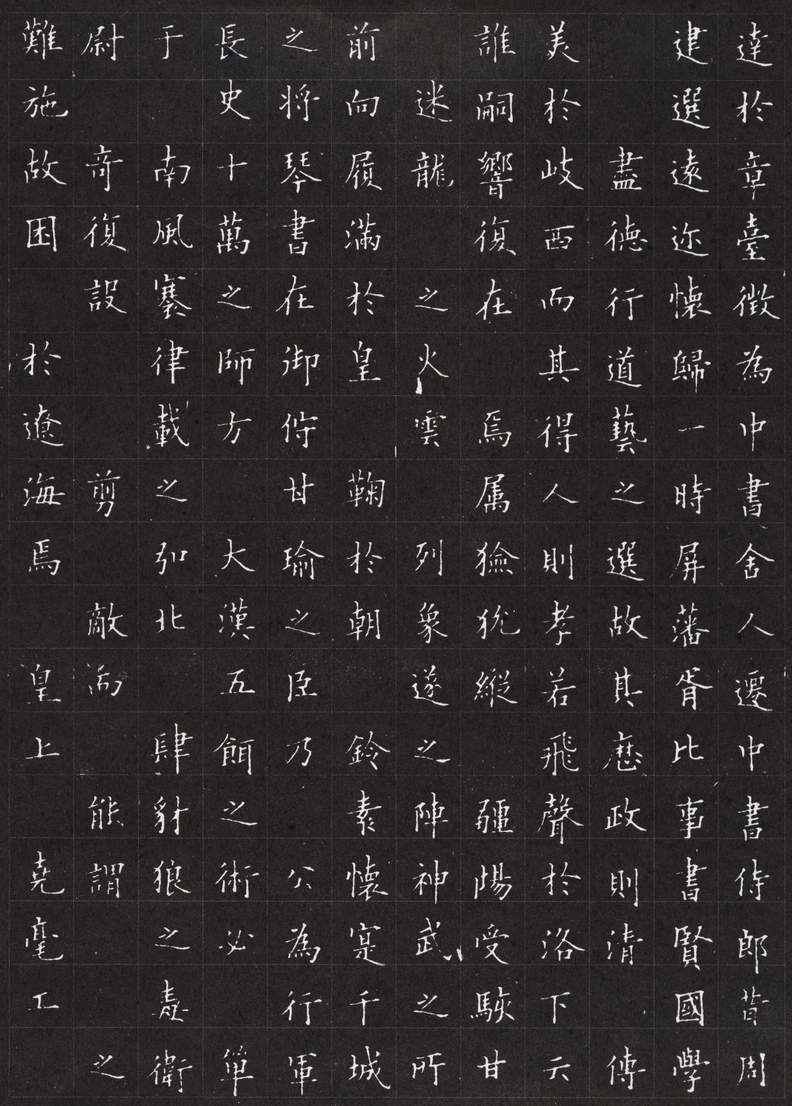 達於章臺徵為中書舍人遷中書侍郎昔周
建選遠迩懷歸一時屏藩胥比事書賢國學
盡德行道藝之選故其歷政則清傳
美於岐西而其得人則孝若飛聲於洛下云
誰嗣響復在焉属獫狁縱疆陽受駭甘
迷龍之火雲列象遂之陣神武之所
前向屐滿於皇鞠於朝鈴素懷寔千城
之將琴書在御侔甘瑜之臣乃公為行軍
長史十萬之師方大漢五餌之術必箄
于南風寋律載之弘北肆豺狼之毒衛
尉奇復設剪敵而能謂之
難施故困於遼海焉皇上堯毫工